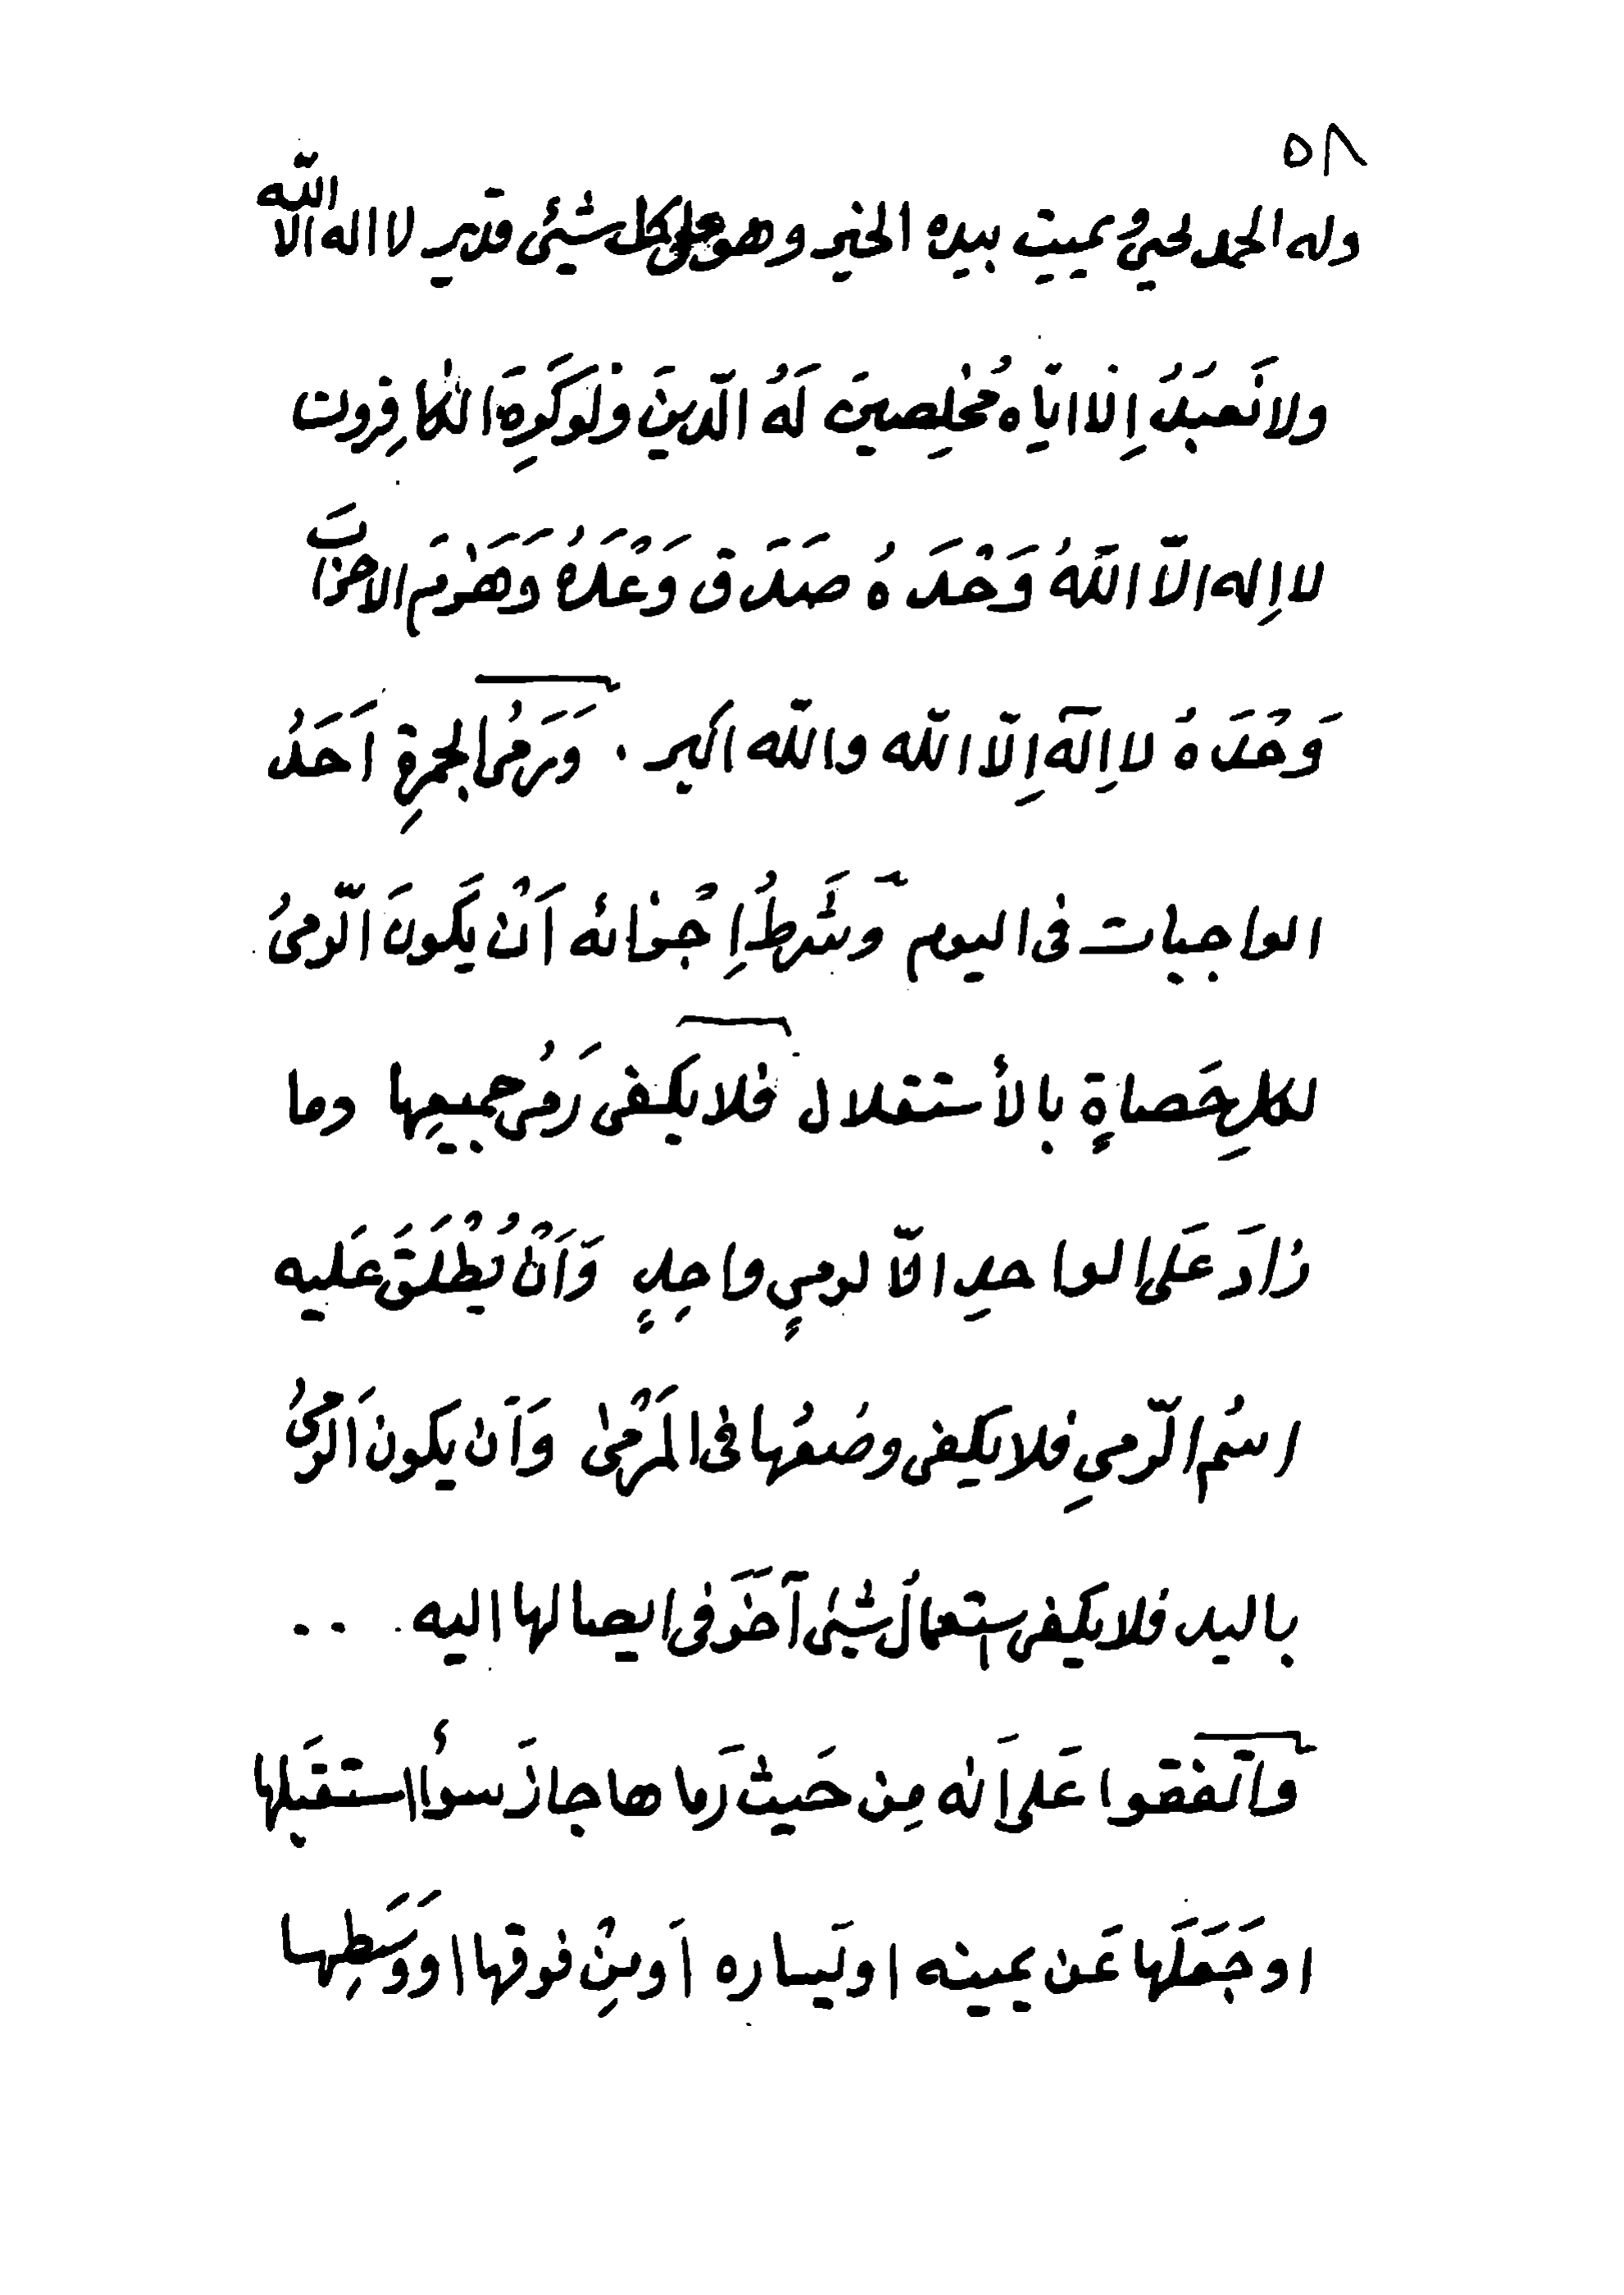 ٥٨
وله الحمد يحيي ويميت بيده الخير وهو على كل شيئ قدير لا اله الا الله
ولا نَعبُدُ اِلّا ايّاهُ مُخلِصينَ لَهُ الدّينَ ولَو كَرِهَ الكافِرون
لا اِله الاّ اللّهُ وَحْدَهُ صَدَق وَعْدَهُ وَهَزَمَ الاحزابَ
وَحْدَهُ لا اِلَه اِلّا اللّه واللّه اكبر . وَرَمْىُ الجمرةِ اَحَدُ
الواجبات فى اليوم وَشَرطُ اِجْزائه اَنْ يَكونَ الرّمىُ
لكلِ حَصاةٍ بالأستقلال فلا يكفى رَمْىُ جميعِها وما
زادَ عَلى الواحدِ الاّ لرميٍ واحِدٍ وَاَنْ يُطْلَقَ عَليه
اسْمُ الرّميِ فلا يكفى وضْعُها فى المَرْمىٰ وَاَن يكون الرمىُ
باليد فلا يكفى ستعمالُ شيئ آخَرَ فى ايصالها اليه . . .
واتّفقوا عَلى اَنه مِن حَيث رَماها جازَ سوأً استقبَلها
او جَعَلَها عَن يمينه او يَساره اَو مِنْ فوقها او وَسَطِها